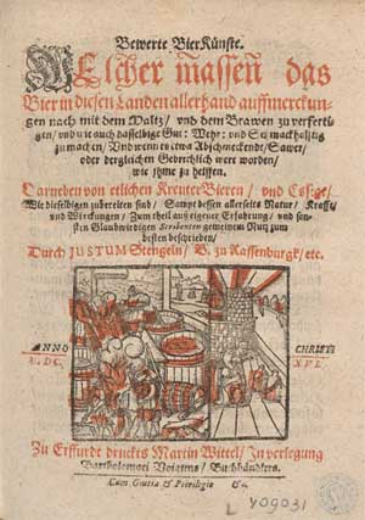 Bewerte BierKünste.
WElcher massen das
Bier in diesen Landen allerhand auffmerckun-
gen nach mit dem Maltz/ vnd dem Brawen zu verferti-
gen/ vnd wie auch dasselbige Gut: Wehr: vnd Schmackhafftig
zu machen/ Vnd wenn es etwa Abschmeckende/ Sawer/
oder dergleichen Gebrechlich were worden/
wie jhme zu helffen.
Darneben von etlichen Kreuter Bieren/ vnd Essige/
Wie dieselbigen zubereiten sind/ Sampt dessen allerseits Natur/ Krafft/
vnd Wirckungen/ Zum theil auß eigener Erfahrung/ vnd son-
sten Glaubwirdigen Scribenten gemeinem Nutz zum
besten beschrieben/
Durch JUSTUM Stengeln/ B. zu Rassenburgk/ etc.
ANNO CHRISTI
M. DC. XVI.
Zu Erffurdt druckts Martin Wittel/ In verlegung
Bartholomæi Voigtens/ Buchhändlers.
Cum Gratia & Privilegio &c.
L 409031